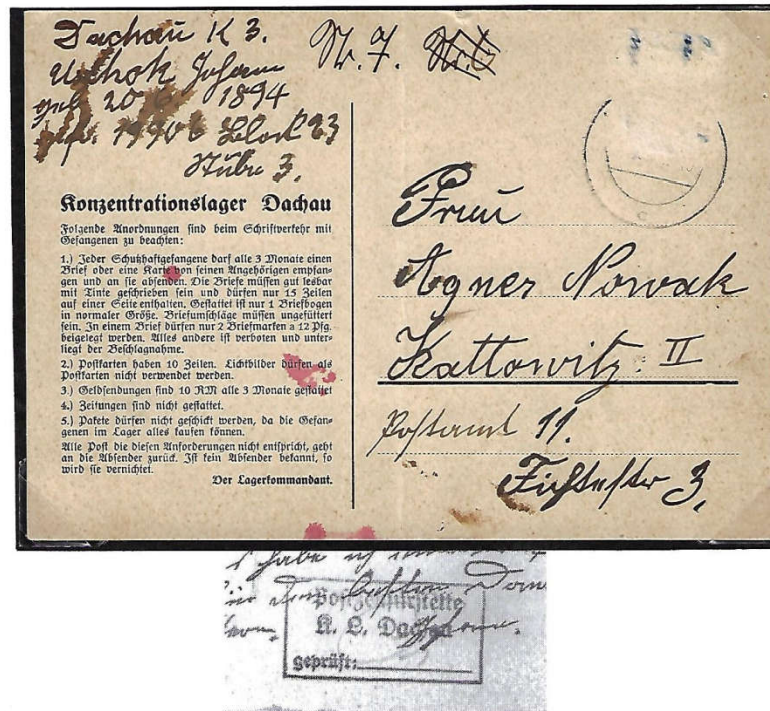 Dachau K 3.
Johann
geb. 20 1894
Block 23
Stube 3.
Nr. 7.
Konzentrationslager Dachau
Folgende Anordnungen sind beim Schriftverkehr mit
Gefangenen zu beachten:
1.) Jeder Schutzhaftgefangene darf alle 3 Monate einen
Brief oder eine Karte von seinen Angehörigen empfan-
gen und an sie absenden. Die Briefe müssen gut lesbar
mit Tinte geschrieben sein und dürfen nur 15 Zeilen
auf einer Seite enthalten. Gestattet ist nur 1 Briefbogen
in normaler Größe. Briefumschläge müssen ungefüttert
sein. In einem Brief dürfen nur 2 Briefmarken a 12 Pfg.
beigelegt werden. Alles andere ist verboten und unter-
liegt der Beschlagnahme.
2.) Postkarten haben 10 Zeilen. Lichtbilder dürfen als
Postkarten nicht verwendet werden.
3.) Geldsendungen sind 10 RM alle 3 Monate gestattet
4.) Zeitungen sind nicht gestattet.
5.) Pakete dürfen nicht geschickt werden, da die Gefan-
genen im Lager alles kaufen können.
Alle Post die diesen Anforderungen nicht entspricht, geht
an die Absender zurück. Ist kein Absender bekannt, so
wird sie vernichtet.
Der Lagerkommandant.
Frau
Agnes Nowak
Kattowitz. II
Postamt 11.
Fichtestr 3.
habe ich
den besten
Postzensurstelle
K. L. Dachau
geprüft: